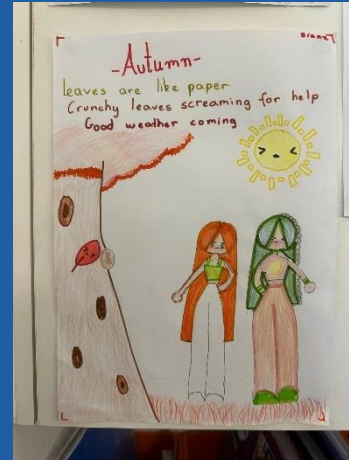 -Autumn-
leaves are like paper
Crunchy leaves screaming for help
Good weather coming